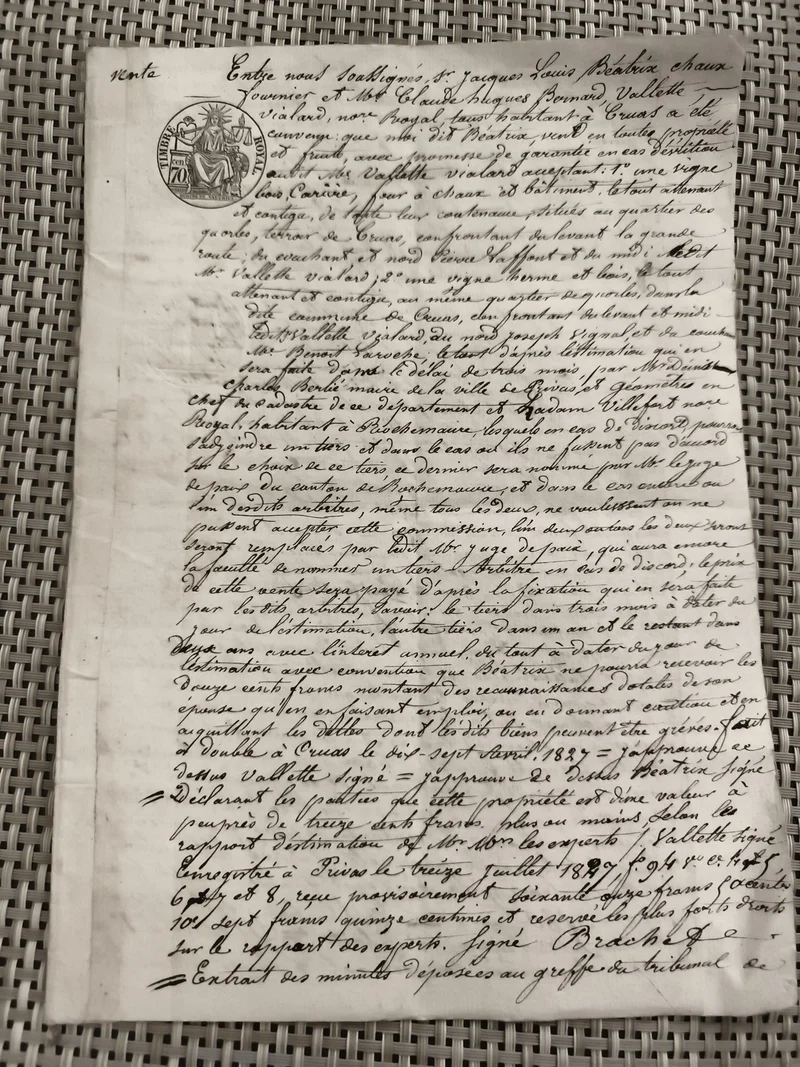 vente
Entre nous soussignés, Sr. Jacques Louis Béatrix chaux
fournier et Mr. Claude hugues Bernard Vallette
vialard, nore Royal, tous habitant à Cruas a été
convenu: que moi dit Béatrix vend en toutes propriété
et fruits, avec promesse de garantie en cas d'éviction
audit Mr. Vallette vialard acceptant: 1o. une vigne
TIMBRE ROYAL
cen 70
bois, Carière, four à chaux et bâtiment le tout attenant
et contigu, de toute leur contenance, situés au quartier des
quorles, terroir de Cruas, confrontant du levant la grande
route; du couchant et nord Pierre Laffont et du midi ledit
Mr. Vallette vialard; 2o. une vigne herme et bois, le tout
attenant et contigu, au même quartier de quorles, dans la
dite commune de Cruas, confrontant du levant et midi
ledit Vallette vialard, du nord Joseph Vignal, et du couchan
Mr. Benoit Larveche; le tout d'après l'estimation qui en
sera faite dans le délai de trois mois, par Mrs
Charles Berlié maire de la ville de Privas, et géomètres en
chef du Cadastre de ce département et Villefort nore
Royal habitant à Rochemaure, lesquels en cas de discord, pourron
s'adjoindre un tiers et dans le cas ou ils ne fussent pas d'accord
sur le choix de ce tiers ce dernier sera nommé par Mr. le juge
de paix du canton de Rochemaure, et dans le cas encore ou
l'un desdits arbitres, même tous les deux, ne voulussent ou ne
pussent accepter cette commission, l'un deux ou tous les deux
seront remplacés par ledit Mr. juge de paix, qui aura encore
la faculté de nommer un tiers-Arbitre en cas de discord; le prix
de cette vente sera payé d'après la fixation qui en sera faite
par les dits arbitres, savoir: le tiers dans trois mois à dater du
jour de l'estimation, l'autre tiers dans un an et le restant dans
deux ans avec l'interet annuel du tout à dater du jour de
l'estimation avec convention que Béatrix ne pourra recevoir les
Douze cents francs montant des reconnaissances dotales de son
épouse qu'en en faisant emploi, ou en donnant caution et en
acquittant les dettes dont lesdits biens peuvent être grévés. fait
à double à Cruas le dix-sept Avril 1827 = j'approuve ce
dessus Vallette signé = j'approuve de dessus Béatrix signé
= Déclarant les parties que cette propriété est d'une valeur à
peuprès de treize cents francs plus ou moins selon les
rapport d'estimation de Mr. Mrs. les experts / Vallette signé
Enregistré à Privas le treize juillet 1827 fo. 94 vo. ce. 4 et 5
6 et 7 et 8, reçu provisoirement soixante onze francs 50 centes
10e. sept francs quinze centimes et reservé les plus forts droits
sur le rapport des experts. Signé Brachet
= Extrait des minutes déposées au greffe du tribunal de